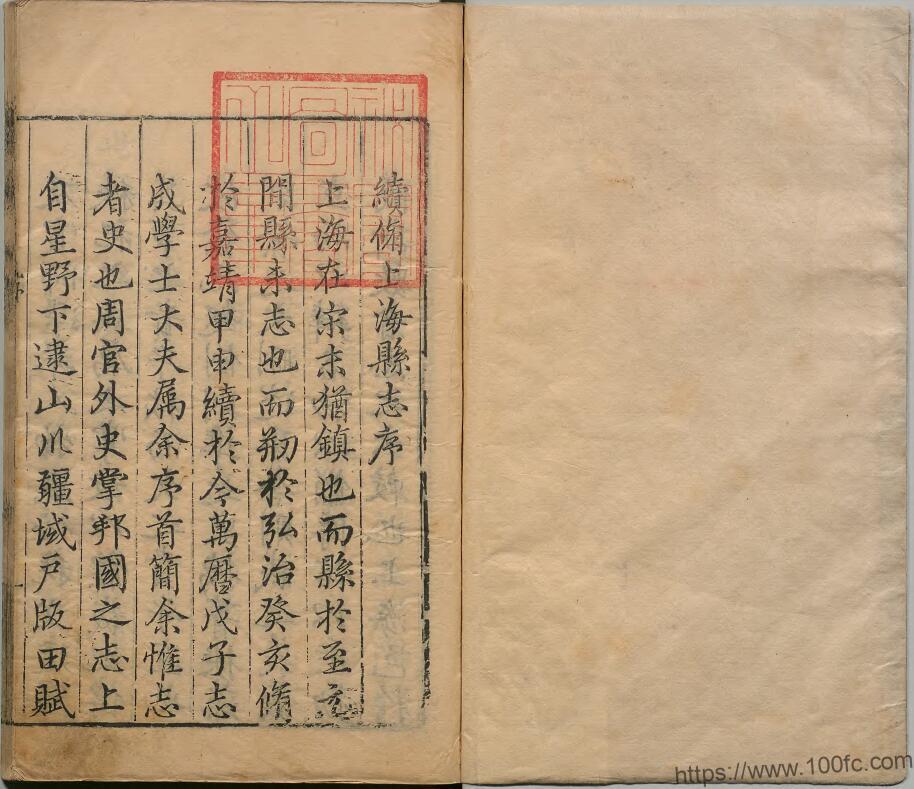 續脩上海縣志序
上海在宋末猶鎮也而縣於至元
間縣未志也而刱於弘治癸亥脩
於嘉靖甲申續於今萬曆戊子志
成學士大夫屬余序首簡余惟志
者史也周官外史掌邦國之志上
自星野下逮山川疆域戶版田賦
https://www.100fc.com